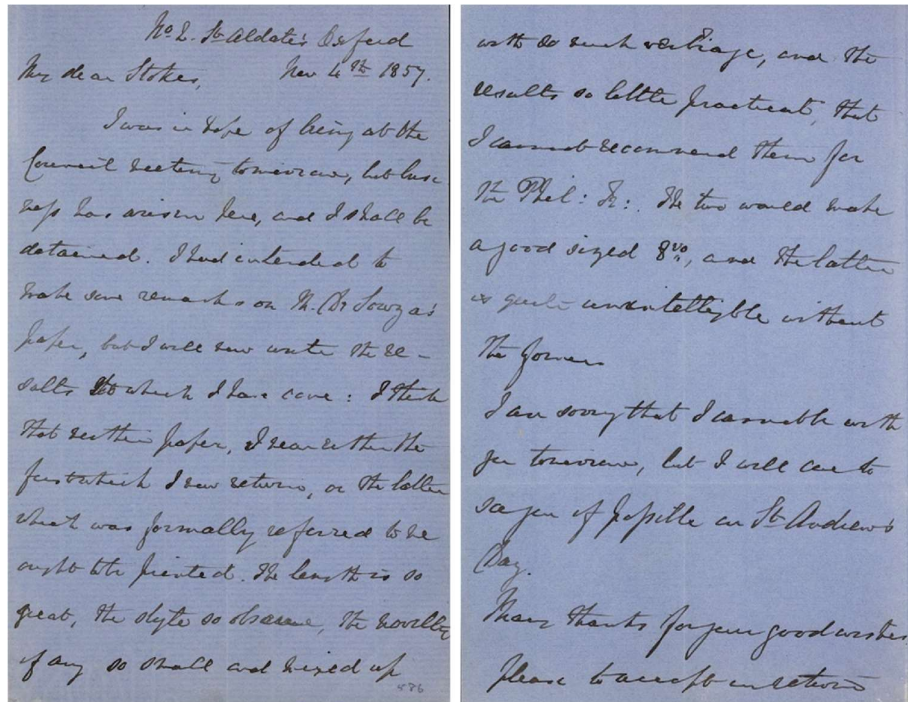 No 2. St Aldate's Oxford
My dear Stokes, Nov 4th 1857.
I was in hope of being at the
Council meeting tomorrow, but busi
ness has arisen here, and I shall be
detained. I had intended to
make some remarks on M. De Souza's
paper, but I will now write the re-
sults to which I have come: I think
that neither paper, I mean neither the
first which I now return, or the latter
which was formally referred to me
ought to be printed. The length is so
great, the style so obscure, the novelty
of any so small and mixed up
486
with so much verbiage, and the
results so little practical, that
I cannot recommend them for
the Phil: Tr:. The two would make
a good sized 8vo, and the latter
is quite unintelligible without
the former
I am sorry that I cannot be with
you tomorrow, but I will come to
see you if possible on St Andrew's
Day.
Many thanks for your good wishes
please to accept in return